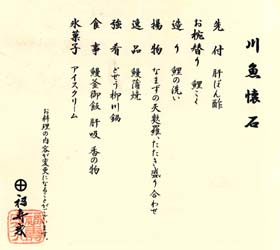 川魚懐石
先付 肝ぽん酢
お椀替り 鯉こく
造り 鯉の洗い
揚物 なまずの天麩羅、たたき盛り合わせ
逸品 鰻蒲焼
強肴 どぜう柳川鍋
食事 鰻釜御飯 肝吸 香の物
氷菓子 アイスクリーム
お料理の内容が変更になることがございます。
福寿家